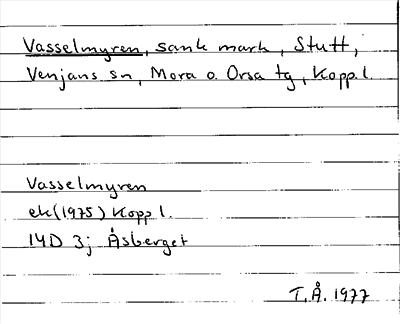 Vasselmyren, sank mark, Stutt,
Venjans sn, Mora o. Orsa tg, Kopp.l.
Vasselmyren
ek(1975) Kopp l.
14D 3j Åsberget
T.Å. 1977